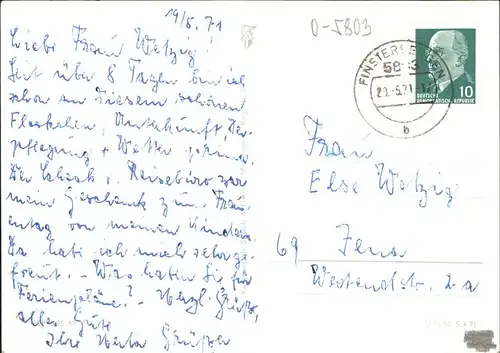 19/5. 71
Liebe Frau Wetzig!
Seit über 8 Tagen bin ich
schon an diesem schönen
Fleckchen, Unterkunft, Ver-
pflegung + Wetter prima.
Der Scheck v. Reisebüro war
mein Geschenk zum Frau-
entag von meinen Kindern.
Da hab ich mich sehr ge-
freut. - Was haben Sie für
Ferienpläne? - Herzl. Grüße,
alles Gute
Ihre Herta
0-5803
FINSTERBERGEN
5803
b
DEUTSCHE
DEMOKRATISCHE REPUBLIK
10
Frau
Else Wetzig
69 Jena
Westendstr. 2a